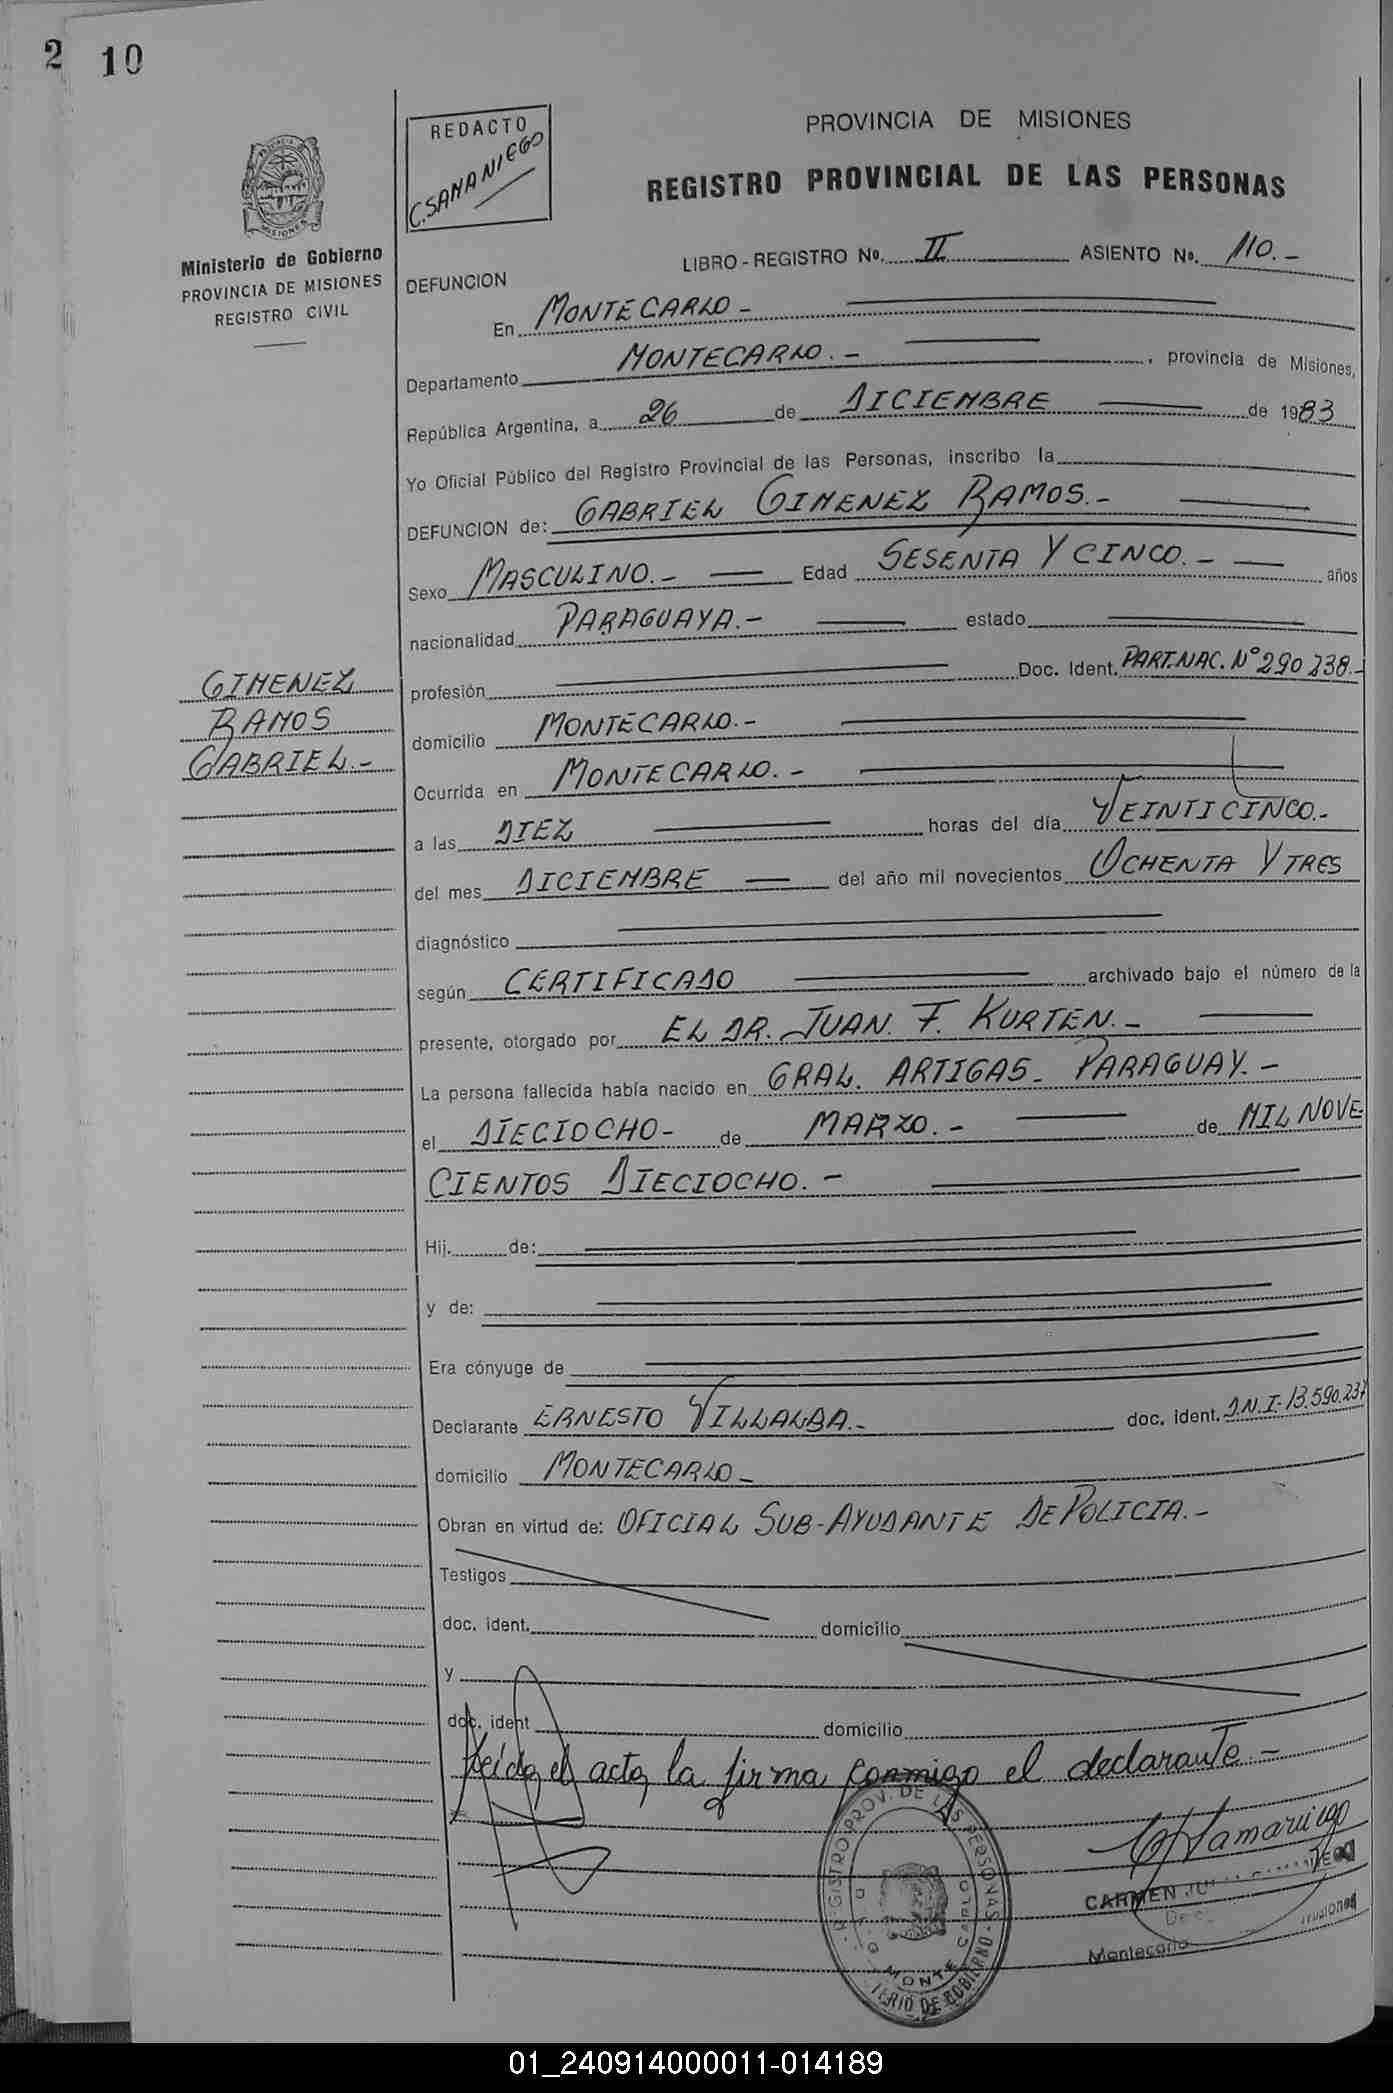 2 10
REDACTO
C. SAMANIEGO
PROVINCIA DE MISIONES
REGISTRO PROVINCIAL DE LAS PERSONAS
Ministerio de Gobierno
PROVINCIA DE MISIONES
REGISTRO CIVIL
MISIONES
LIBRO - REGISTRO No. II ASIENTO No. 110.-
DEFUNCION
En MONTECARLO -
Departamento MONTECARLO.- , provincia de Misiones,
República Argentina, a 26 de DICIEMBRE de 1983
Yo Oficial Público del Registro Provincial de las Personas, inscribo la
DEFUNCION de: GABRIEL GIMENEZ RAMOS.-
Sexo MASCULINO.- Edad SESENTA Y CINCO.- años
nacionalidad PARAGUAYA.- estado
GIMENEZ
RAMOS
GABRIEL.-
profesión Doc. Ident. PART.NAC. Nº 290 238.-
domicilio MONTECARLO.-
Ocurrida en MONTECARLO.-
a las DIEZ horas del día VEINTICINCO.-
del mes DICIEMBRE del año mil novecientos OCHENTA Y TRES
diagnóstico
según CERTIFICADO archivado bajo el número de la
presente, otorgado por EL DR. JUAN. F. KURTEN.-
La persona fallecida había nacido en GRAL. ARTIGAS - PARAGUAY.-
el DIECIOCHO- de MARZO.- de MIL NOVE
CIENTOS DIECIOCHO.-
Hij. de:
y de:
Era cónyuge de
Declarante ERNESTO VILLALBA.- doc. ident. D.N.I-13.590.237
domicilio MONTECARLO-
Obran en virtud de: OFICIAL SUB-AYUDANTE DE POLICIA.-
Testigos
doc. ident. domicilio
y
doc. ident domicilio
Leída el acta la firma conmigo el declarante.-
REGISTRO PROV. DE LAS PERSONAS
MONTE CARLO
TERIO DE GOBIERNO
CSamaniego
CARMEN
Montecarlo
01_240914000011-014189